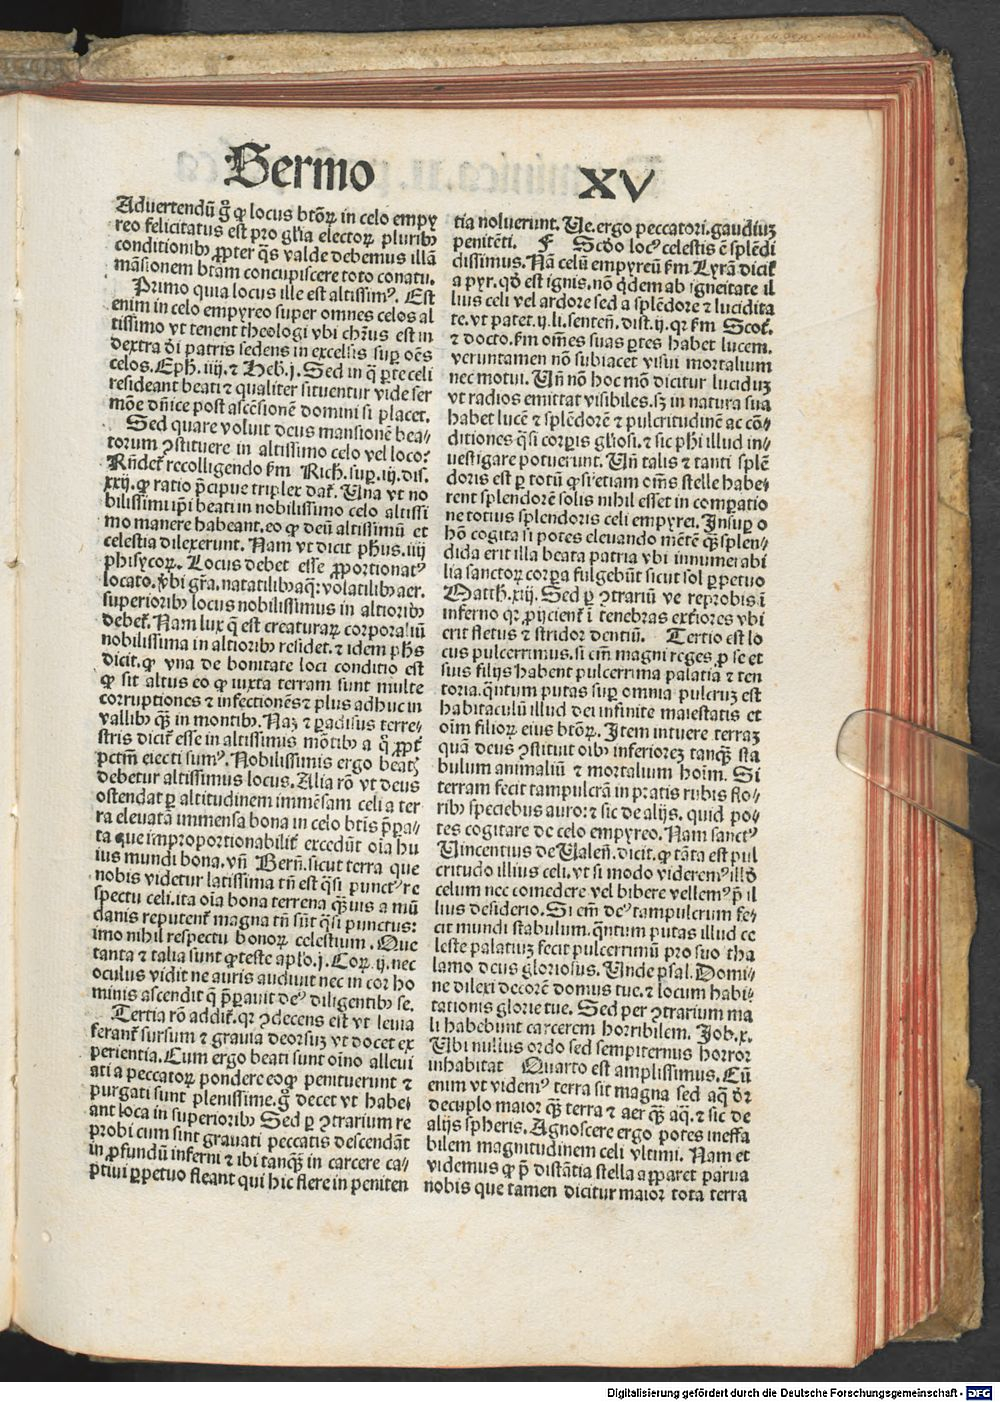 Sermo XV
Aduertendū g̊ ꝙ locus btōꝝ in celo empy
reo felicitatus est pro gl̓ia electoꝝ pluribꝰ
conditionibꝰ ꝓpter q̄s valde debemus illā
māsionem btam concupiscere toto conatu.
Primo quia locus ille est altissimꝰ. Est
enim in celo empyreo super omnes celos al
tissimo vt tenent theologi vbi chr̄us est in
dextra dei patris sedens in excelsis suꝑ oēs
celos. Eph̓. iiij. ⁊ Heb̓. j. Sed in q̄ ꝑte celi
resideant beati ⁊ qualiter situentur vide ser
mōe dn̄ice post ascēsionē domini si placet.
Sed quare voluit deus mansionē bea⸗
torum ꝯstituere in altissimo celo vel loco?
Rn̄det̓ recolligendo ẜm Rich. suꝑ. iij. dis.
xxij. ꝙ ratio p̄cipue triplex dat̓. Una vt no
bilissimi ip̄i beati in nobilissimo celo altissi
mo manere habeant. eo ꝙ deū altissimū et
celestia dilexerunt. Nam vt dicit ph̓us. iiij
phisycoꝝ. Locus debet esse ꝓportionatꝰ
locato. vbi gr̄a. natatilibꝰ aq̄: volatilibꝰ aer.
superioribꝰ locus nobilissimus in altioribꝰ
debet̓. Nam lux q̄ est creaturaꝝ corporaliū
nobilissima in altioribꝰ residet. ⁊ idem ph̓s
dicit. ꝙ vna de bonitate loci conditio est
ꝙ sit altus eo ꝙ iuxta terram sunt multe
corruptiones ⁊ infectionēs ⁊ plus adhuc in
vallibꝰ q̄ꝫ in montibꝰ. Naꝫ ⁊ ꝑadisus terre⸗
stris dicit̓ esse in altissimis mōtibꝰ a q̊ ꝓpt̓
pctm̄ eiecti sumꝰ. Nobilissimis ergo beatꝭ
debetur altissimus locus. Alia rō vt deus
ostendat ꝑ altitudinem immēsam celi a ter
ra eleuatā immensa bona in celo btīs p̄ꝑa⸗
ta que improportionabilit̓ excedūt oīa hu
ius mundi bona. vn̄ Bern̄. sicut terra que
nobis videtur latissima tn̄ est q̄si punctꝰ re
spectu celi. ita oīa bona terrena q̄ꝫuis a mū
danis reputent̓ magna tn̄ sūt q̄si punctus:
imo nihil respectu bonoꝝ celestium. Que
tanta ⁊ talia sunt ꝙ teste aplo. j. Coꝝ. ij. nec
oculus vidit ne auris audiuit nec in cor ho
minis ascendit q̄ p̄ꝑauit deꝰ diligentibꝰ se.
Tertia rō addit̓. qꝛ ꝯdecens est vt leuia
ferant̓ sursum ⁊ grauia deorsuꝫ vt docet ex
perientia. Cum ergo beati sunt oīno alleui
ati a peccatoꝝ pondere eoꝙ penituerunt ⁊
purgati sunt plenissime. g̊ decet vt habe⸗
ant loca in superioribꝰ Sed ꝑ ꝯtrarium re
probi cum sint grauati peccatis descendāt
in ꝓfundū inferni ⁊ ibi tanq̄ꝫ in carcere ca⸗
ptiui ꝑpetuo fleant qui hic flere in peniten
tia noluerunt. Ue. ergo peccatori. gaudiuꝫ
penitēti. F Scd̓o locꝰ celestis ē splēdi
dissimus. Nā celū empyreū ẜm Lyrā dicit̓
a pyr. qd̓ est ignis. nō q̇dem ab igneitate il
lius celi vel ardore sed a splēdore ⁊ lucidita
te. vt patet. ij. li. senten̄. dist. ij. qꝛ ẜm Scot̓.
⁊ docto. ẜm om̄es suas ꝑtes habet lucem.
veruntamen nō subiacet visui mortalium
nec motui. Un̄ nō hoc mō dicitur luciduꝫ
vt radios emittat visibiles. sꝫ in natura sua
habet lucē ⁊ splēdorē ⁊ pulcritudinē ac cō⸗
ditiones q̄si corꝑis gl̓iosi. ⁊ sic ph̓i illud in⸗
uestigare potuerunt. Un̄ talis ⁊ tanti splē
doris est ꝑ totū ꝙ si etiam om̄s stelle habe⸗
rent splendorē solis nihil esset in comꝑatio
ne totius splendoris celi empyrei. Insuꝑ o
hō cogita si potes eleuando mētē q̄ꝫ splen⸗
dida erit illa beata patria vbi innumerabi
lia sanctoꝝ corꝑa fulgebūt sicut sol ꝑpetuo
Matth. xiij. Sed ꝑ ꝯtrariū ve reprobis ī
inferno qꝛ ꝓijcient̓ ī tenebras ext̓iores vbi
erit fletus ⁊ stridor dentiū. Tertio est lo
cus pulcerrimus. si em̄ magni reges ꝓ se et
suis filijs habent pulcerrima palatia ⁊ ten
toria. q̄ntum putas suꝑ omnia pulcruꝫ est
habitaculū illud dei infinite maiestatis et
oīm filioꝝ eius btōꝝ. Item intuere terraꝫ
quā deus ꝯstituit oībꝰ inferiorez tanq̄ꝫ sta
bulum animaliū ⁊ mortalium hoīm. Si
terram fecit tam pulcrā in pratis rubis flo⸗
ribꝰ speciebus auro: ⁊ sic de alijs. quid po⸗
tes cogitare de celo empyreo. Nam sanctꝰ
Uincentius de Ualen̄. dicit. ꝙ tāta est pul
critudo illius celi. vt si modo videremꝰ illd̓
celum nec comedere vel bibere vellemꝰ p̄ il
lius desiderio. Si em̄ deꝰ tam pulcrum fe⸗
cit mundi stabulum. q̄ntum putas illud ce
leste palatiuꝫ fecit pulcerrimū pro suo tha
lamo deus gloriosus. Unde psal. Domi⸗
ne dilexi decorē domus tue. ⁊ locum habi⸗
tationis glorie tue. Sed per ꝯtrarium ma
li habebunt carcerem horribilem. Job. x.
Ubi nullus ordo sed sempiternus horror
inhabitat Quarto est amplissimus. Cū
enim vt videmꝰ terra sit magna sed aq̄ dr̄
decuplo maior q̄ꝫ terra ⁊ aer q̄ꝫ aq̄. ⁊ sic de
alijs spheris. Agnoscere ergo potes ineffa
bilem magnitudinem celi vltimi. Nam et
videmus ꝙ p̄ distātia stella apparet parua
nobis que tamen dicitur maior tota terra
Digitalisierung gefördert durch die Deutsche Forschungsgemeinschaft - DFG